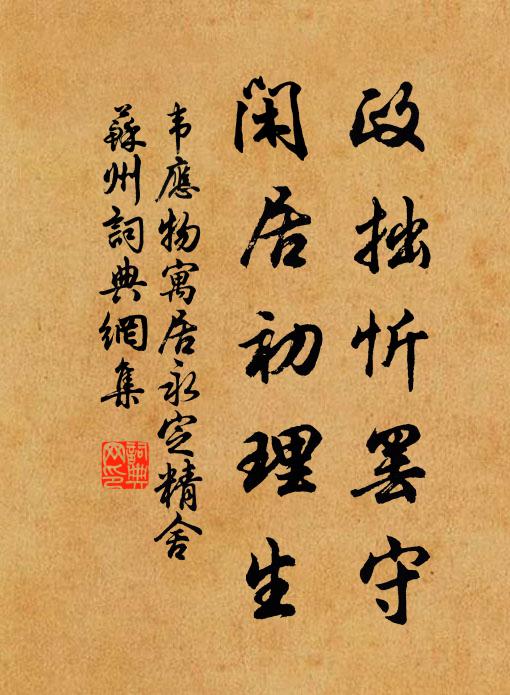 政拙忻罢守
闲居初理生
韦應物寓居永定精舍
蘇州詞典網集
詞典
网印